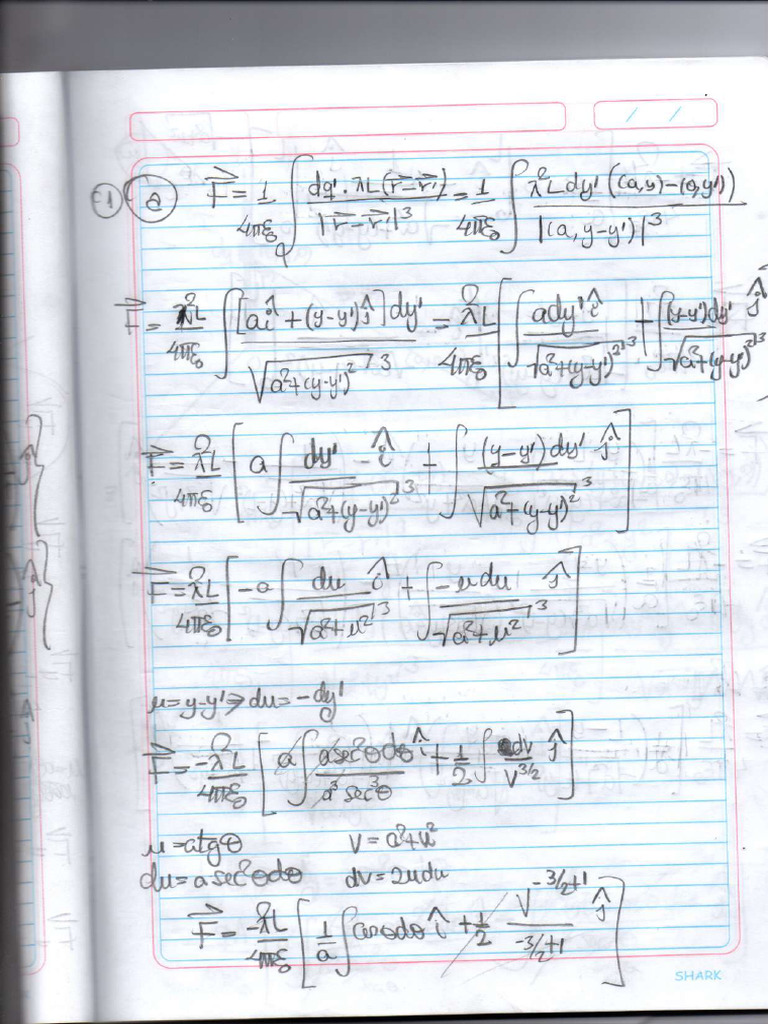 F1 a) \vec{F} = \frac{1}{4πε_0} ∫ \frac{dq' . λL(\vec{r}-\vec{r}')}{|\vec{r}-\vec{r}'|^3} = \frac{1}{4πε_0} ∫ \frac{λ^2 L dy' ((a,y)-(0,y'))}{|(a, y-y')|^3}
\vec{F} = \frac{λ^2 L}{4πε_0} ∫ \frac{[a\hat{i} + (y-y')\hat{j}] dy'}{\sqrt{a^2+(y-y')^2}^3} = \frac{λ^2 L}{4πε_0} [∫ \frac{a dy' \hat{i}}{\sqrt{a^2+(y-y')^2}^3} + ∫ \frac{(y-y')dy' \hat{j}}{\sqrt{a^2+(y-y')^2}^3}
\vec{F} = \frac{λ^2 L}{4πε_0} [a ∫ \frac{dy'}{\sqrt{a^2+(y-y')^2}^3} \hat{i} + ∫ \frac{(y-y')dy'}{\sqrt{a^2+(y-y')^2}^3} \hat{j}]
\vec{F} = \frac{λ^2 L}{4πε_0} [-a ∫ \frac{du}{\sqrt{a^2+u^2}^3} \hat{i} + ∫ \frac{-u du}{\sqrt{a^2+u^2}^3} \hat{j}]
u = y-y' ⇒ du = -dy'
\vec{F} = \frac{-λ^2 L}{4πε_0} [a ∫ \frac{a sec^2θ dθ}{a^3 sec^3θ} \hat{i} + \frac{1}{2} ∫ \frac{dv}{v^{3/2}} \hat{j}]
u = a tgθ v = a^2+u^2
du = a sec^2θ dθ dv = 2u du
\vec{F} = \frac{-λ^2 L}{4πε_0} [\frac{1}{a} ∫ cosθ dθ \hat{i} + \frac{1}{2} \frac{v^{-3/2+1}}{-3/2+1} \hat{j}]
SHARK